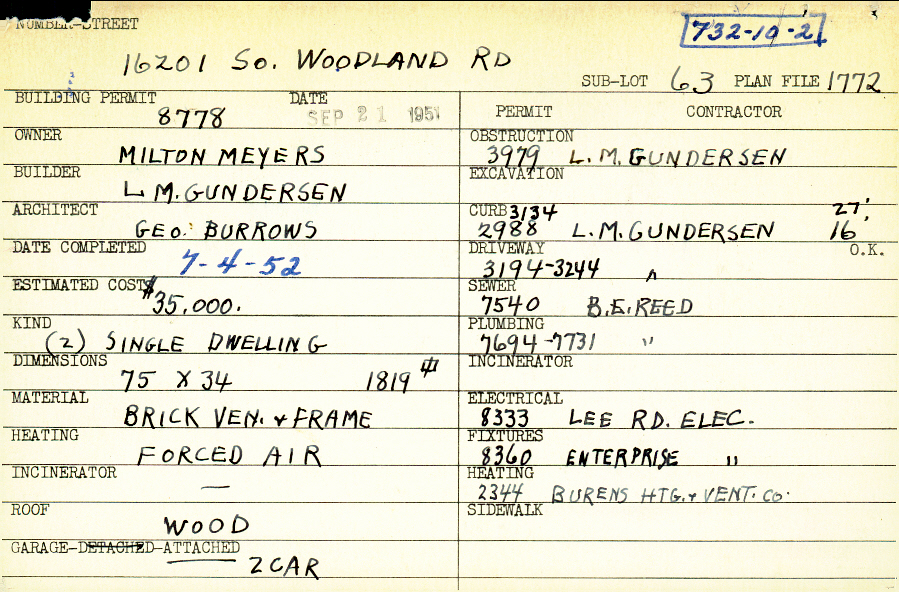 NUMBER-STREET
732-10-2
16201 So. WOODLAND RD
SUB-LOT 63 PLAN FILE 1772
BUILDING PERMIT DATE
8778 SEP 21 1951
OWNER
MILTON MEYERS
BUILDER
L M. GUNDERSEN
ARCHITECT
GEO. BURROWS
DATE COMPLETED
7-4-52
ESTIMATED COST
$35,000.
KIND
(2) SINGLE DWELLING
DIMENSIONS
75 X 34 1819
MATERIAL
BRICK VEN. & FRAME
HEATING
FORCED AIR
INCINERATOR
—
ROOF
WOOD
GARAGE-DETACHED-ATTACHED
2 CAR
PERMIT CONTRACTOR
OBSTRUCTION
3979 L. M. GUNDERSEN
EXCAVATION
CURB 3134 27'
2988 L. M. GUNDERSEN 16'
DRIVEWAY O.K.
3194-3244 "
SEWER
7540 B.E. REED
PLUMBING
7694-7731 "
INCINERATOR
ELECTRICAL
8333 LEE RD. ELEC.
FIXTURES
8360 ENTERPRISE "
HEATING
2344 BURENS HTG. & VENT. CO.
SIDEWALK